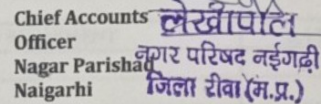 Chief Accounts
Officer
Nagar Parishad
Naigarhi
लेखापाल
नगर परिषद नईगढ़ी
जिला रीवा (म.प्र.)